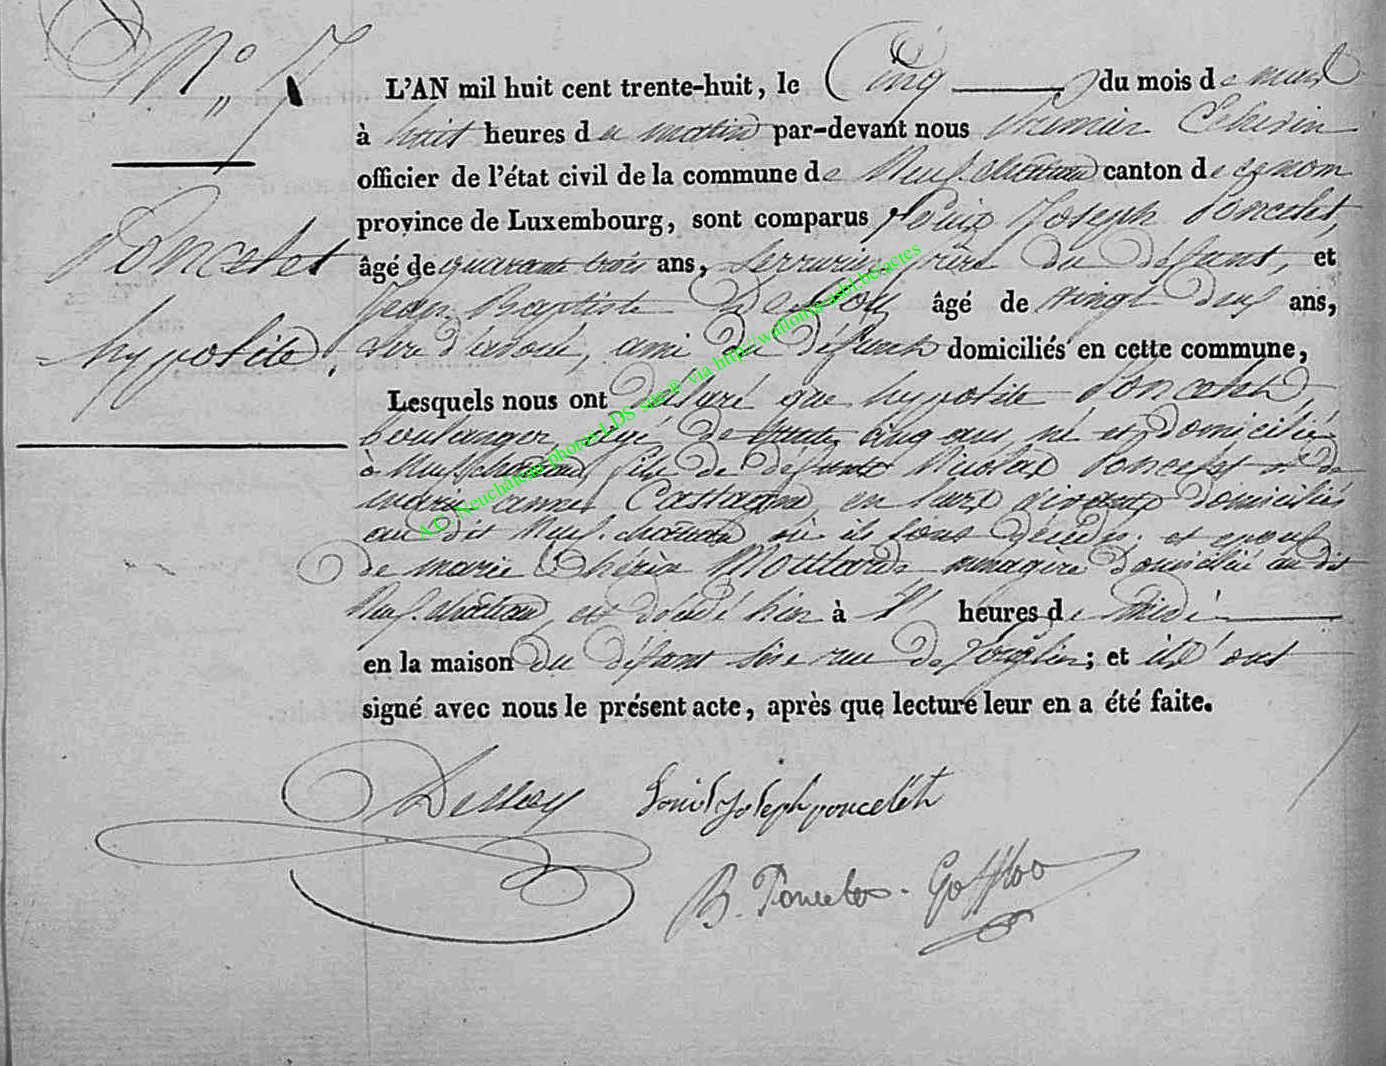 N° 7
Poncelet
hypolite.
L'AN mil huit cent trente-huit, le Cinq du mois de mars
à huit heures du matin par-devant nous premier Echevin
officier de l'état civil de la commune de Neufchateau canton de ce nom
province de Luxembourg, sont comparus Louis Joseph Poncelet,
âgé de quarante trois ans, serrurier, frère du défunt, et
Jean Baptiste Dessoy âgé de vingt deux ans,
clerc d'avoué, ami du défunt domiciliés en cette commune,
Lesquels nous ont déclaré que hypolite Poncelet,
boulanger, agé de trente cinq ans né et domicilié
à Neufchateau, fils de défunt Nicolas Poncelet et de
marie anne Castagne, en leur vivant domiciliés
au dit Neufchateau où ils sont décédés; et epoux
de marie Thérèse Moutarde ménagère domiciliée au dit
Neufchateau, est décédé hier à heures de midi
en la maison du défunt sise rue de ; et ils ont
signé avec nous le présent acte, après que lecture leur en a été faite.
Dessoy Louis Joseph poncelet
B. Poncelet-Goffloo
A.C. Neuchâteau photos LDS site® via http://wallonia-asbl.be/actes